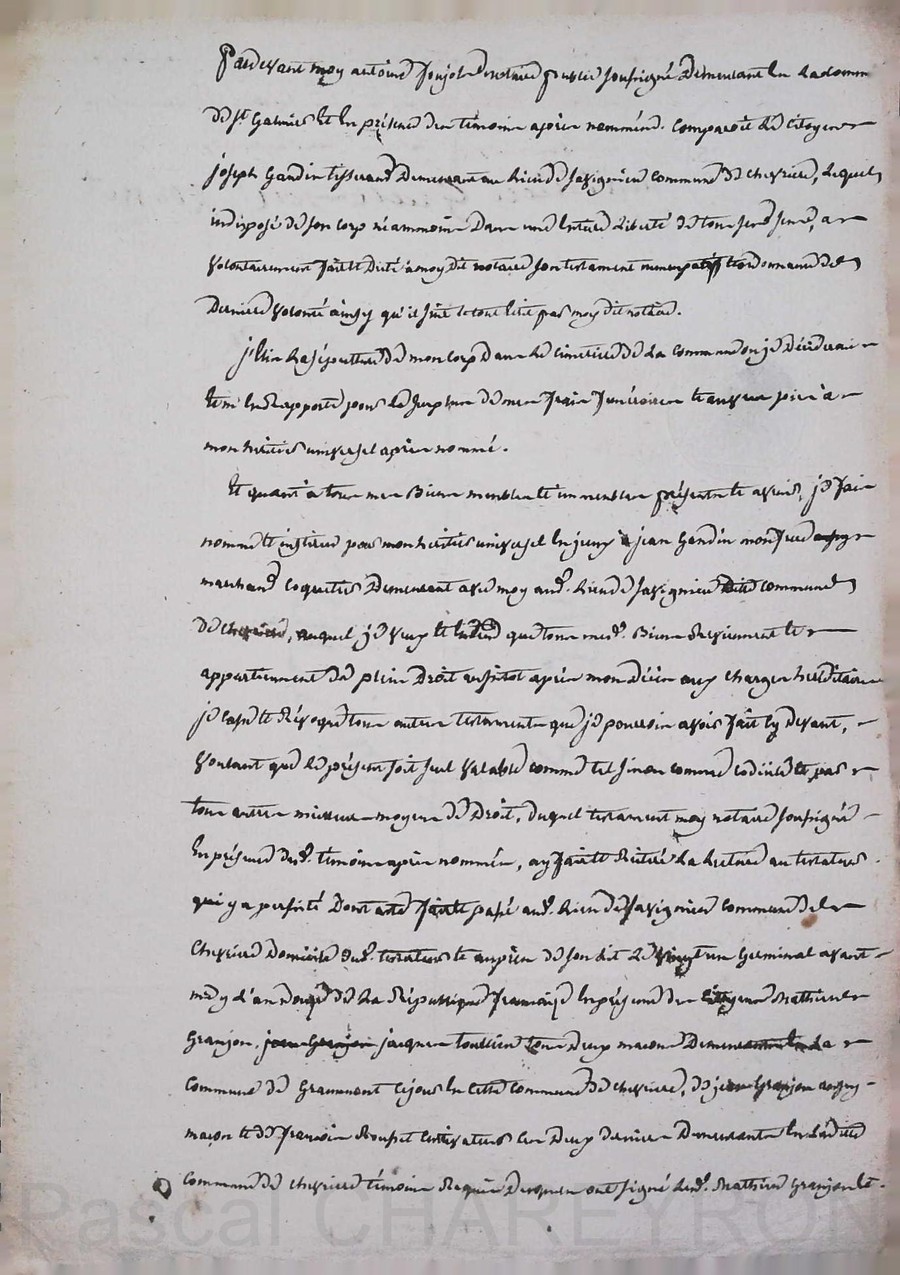 Pardevant moy antoine Foujols notaire public soussigné Demeurant en la comm
de st Galmier et en présence des témoins après nommés. Comparoit le citoyen
joseph Gandin tisserand Demeurant au lieu de Savignieu commune de chevriere, lequel
indisposé de son corp néammoins Dans une entiere liberté de tous ses sens, a
volontairement fait et dicté à moy dit notaire son testament nuncupatif et ordonnance de
Derniere volonté ainsy qu'il suit le tout écrit par moy dit notaire.
j'élis la sépulture de mon corp Dans le cimetiere de la commune ou je décéderai
et m'en rapporte pour les frais funéraires et œuvres pies à
mon héritier universel après nommé.
Et quant à tous mes Biens meubles et immeubles présents et avenir, je fais
nomme et institue pour mon héritier universel jean Gandin mon frere
marchand coquetier Demeurant avec moy aud. lieu de Savignieu commune
de chevriere, auquel je veux et entend que tous mesd. Biens reviennent et
appartiennent de plein Droit aussitot après mon décès aux charges héréditaires
je casse et révoque tous autres testaments que je pourrois avoir fait cy devant,
voulant que le présent soit seul valable comme tel sinon comme codicile et par
tous autres meilleurs moyens de Droit, duquel testament moy notaire soussigné
En présence desd. témoins après nommés, ay fait et réitéré la lecture au testateur
qui y a persisté Dont acte fait et passé aud. lieu de Savignieu commune de
chevriere Domicile dud. testateur et auprès de son lit le vingt un Germinal avant
midy l'an Douze de la République française En présence des citoyens Mathieu
Granjon, jacques tous Deux macons
commune de Grammont cejour en cette commune de chevriere, de jean Granjon aussy
macon et de françois Cultivateur ces Deux derniers Demeurants en ladite
commune de chevriere témoins Requis Desquels ont signé led. Mathieu Granjon et
Pascal CHAREYRON